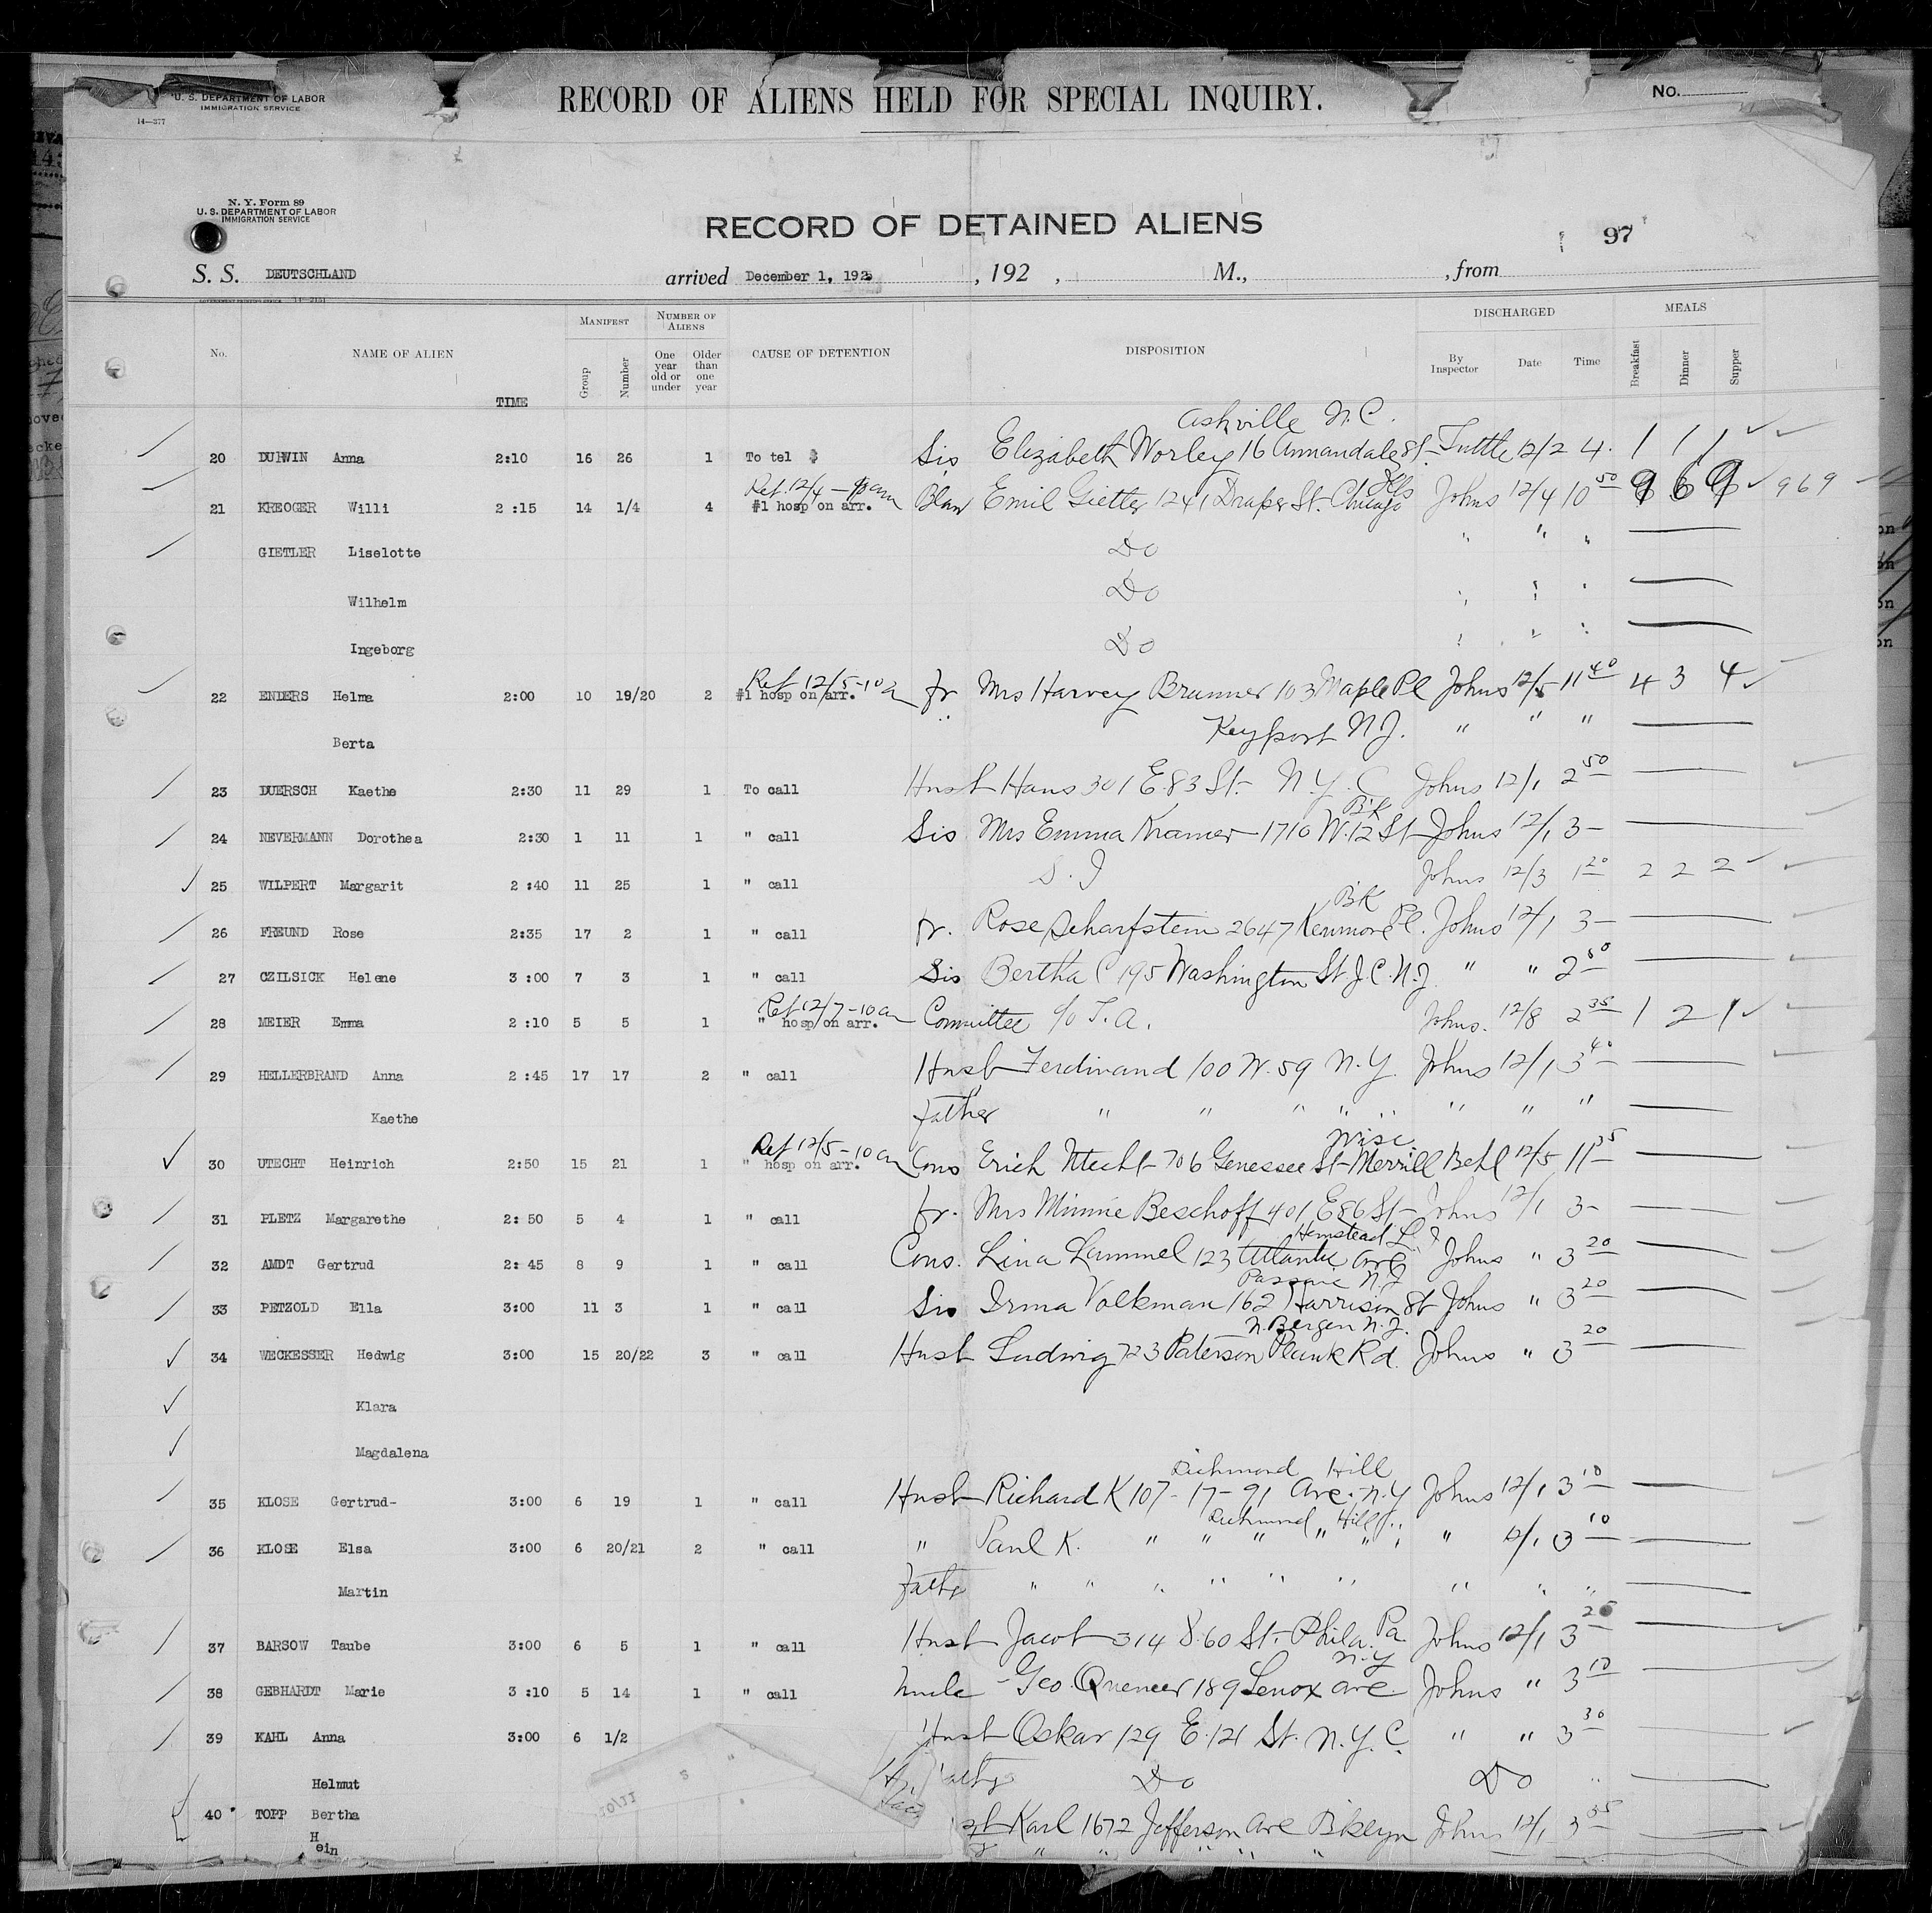 U. S. DEPARTMENT OF LABOR
IMMIGRATION SERVICE
14—377
RECORD OF ALIENS HELD FOR SPECIAL INQUIRY.
No.
N. Y. Form 89
U. S. DEPARTMENT OF LABOR
IMMIGRATION SERVICE
RECORD OF DETAINED ALIENS
97
S. S. DEUTSCHLAND arrived December 1, 192 , 192 , M., , from
No. NAME OF ALIEN TIME MANIFEST Group Number NUMBER OF ALIENS One year old or under Older than one year CAUSE OF DETENTION DISPOSITION DISCHARGED By Inspector Date Time MEALS Breakfast Dinner Supper
Ashville N.C.
20 DURWIN Anna 2:10 16 26 1 To tel Sis Elizabeth Worley 16 Annandale St. Tuttle 12/2 4. 1 1 1
Ref. 12/4 – 10 am
21 KREOGER Willi 2 :15 14 1/4 4 #1 hosp on arr. Emil Gietler 1241 Draper St. Chicago Ills Johns 12/4 10 50 9 6 9 969
GIETLER Liselotte Do " " "
Wilhelm Do " " "
Ingeborg Do " " "
Ref 12/5-10 a
22 ENDERS Helma 2:00 10 19/20 2 #1 hosp on arr. fr Mrs Harvey Brunner 103 Maple Pl Johns 12/5 11 40 4 3 4
Berta " Keyport N.J. " " "
23 DUERSCH Kaethe 2:30 11 29 1 To call Husb Hans 301 E.83 St. N.Y.C Johns 12/1 2 50
24 NEVERMANN Dorothea 2:30 1 11 1 " call Sis Mrs Emma Kramer – 1710 W.12 St Bk Johns 12/1 3–
25 WILPERT Margarit 2 :40 11 25 1 " call S.I Johns 12/3 1 20 2 2 2
26 FREUND Rose 2:35 17 2 1 " call fr. Rose Scharfstein 2647 Kenmore Pl. BK Johns 12/1 3–
27 CZILSICK Helene 3 :00 7 3 1 " call Sis Bertha C 195 Washington St. J.C. N.J. " " 2 50
Ref 12/7-10 am
28 MEIER Emma 2 :10 5 5 1 " hosp on arr. Committee c/o T.A. Johns. 12/8 2 35 1 2 1
29 HELLERBRAND Anna 2 :45 17 17 2 " call Husb Ferdinand 100 W. 59 N.Y. Johns 12/1 3 40
Kaethe Father " " " " " " " "
Ref 12/5-10 am
30 UTECHT Heinrich 2:50 15 21 1 " hosp on arr. Cons Erich Utecht 706 Genessee St Merrill Wisc Behl 12/5 11 35
31 PLETZ Margarethe 2: 50 5 4 1 " call fr. Mrs Minnie Beschoff 401 E 86 St Johns 12/1 3–
Hemstead L.I
32 AMDT Gertrud 2: 45 8 9 1 " call Cons. Lina Lammel 123 Atlantic Ave Johns " 3 20
Passaic N.J
33 PETZOLD Ella 3:00 11 3 1 " call Sis Irma Volkman 162 Harrison St Johns " 3 20
N. Bergen N.J.
34 WECKESSER Hedwig 3:00 15 20/22 3 " call Husb Ludwig 723 Paterson Plank Rd. Johns " 3 20
Klara
Magdalena
Richmond Hill
35 KLOSE Gertrud- 3:00 6 19 1 " call Husb Richard K 107-17-91 Ave. N.Y Johns 12/1 3 10
Richmond Hill
36 KLOSE Elsa 3:00 6 20/21 2 " call " Paul K. " " " " " " 12/1 3 10
Martin Father " " " " " " " " "
37 BARSOW Taube 3:00 6 5 1 " call Husb Jacob 314 S.60 St. Phila. Pa Johns 12/1 3 25
N.Y
38 GEBHARDT Marie 3 :10 5 14 1 " call Uncle Geo. Quencer 189 Lenox Ave Johns " 3 10
39 KAHL Anna 3:00 6 1/2 Husb Oskar 129 E.121 St. N.Y.C. " " 3 30
Helmut Do Do "
20/21
40 TOPP Bertha Karl 1672 Jefferson Ave Bklyn Johns 12/1 3 35
Hein " " " " "